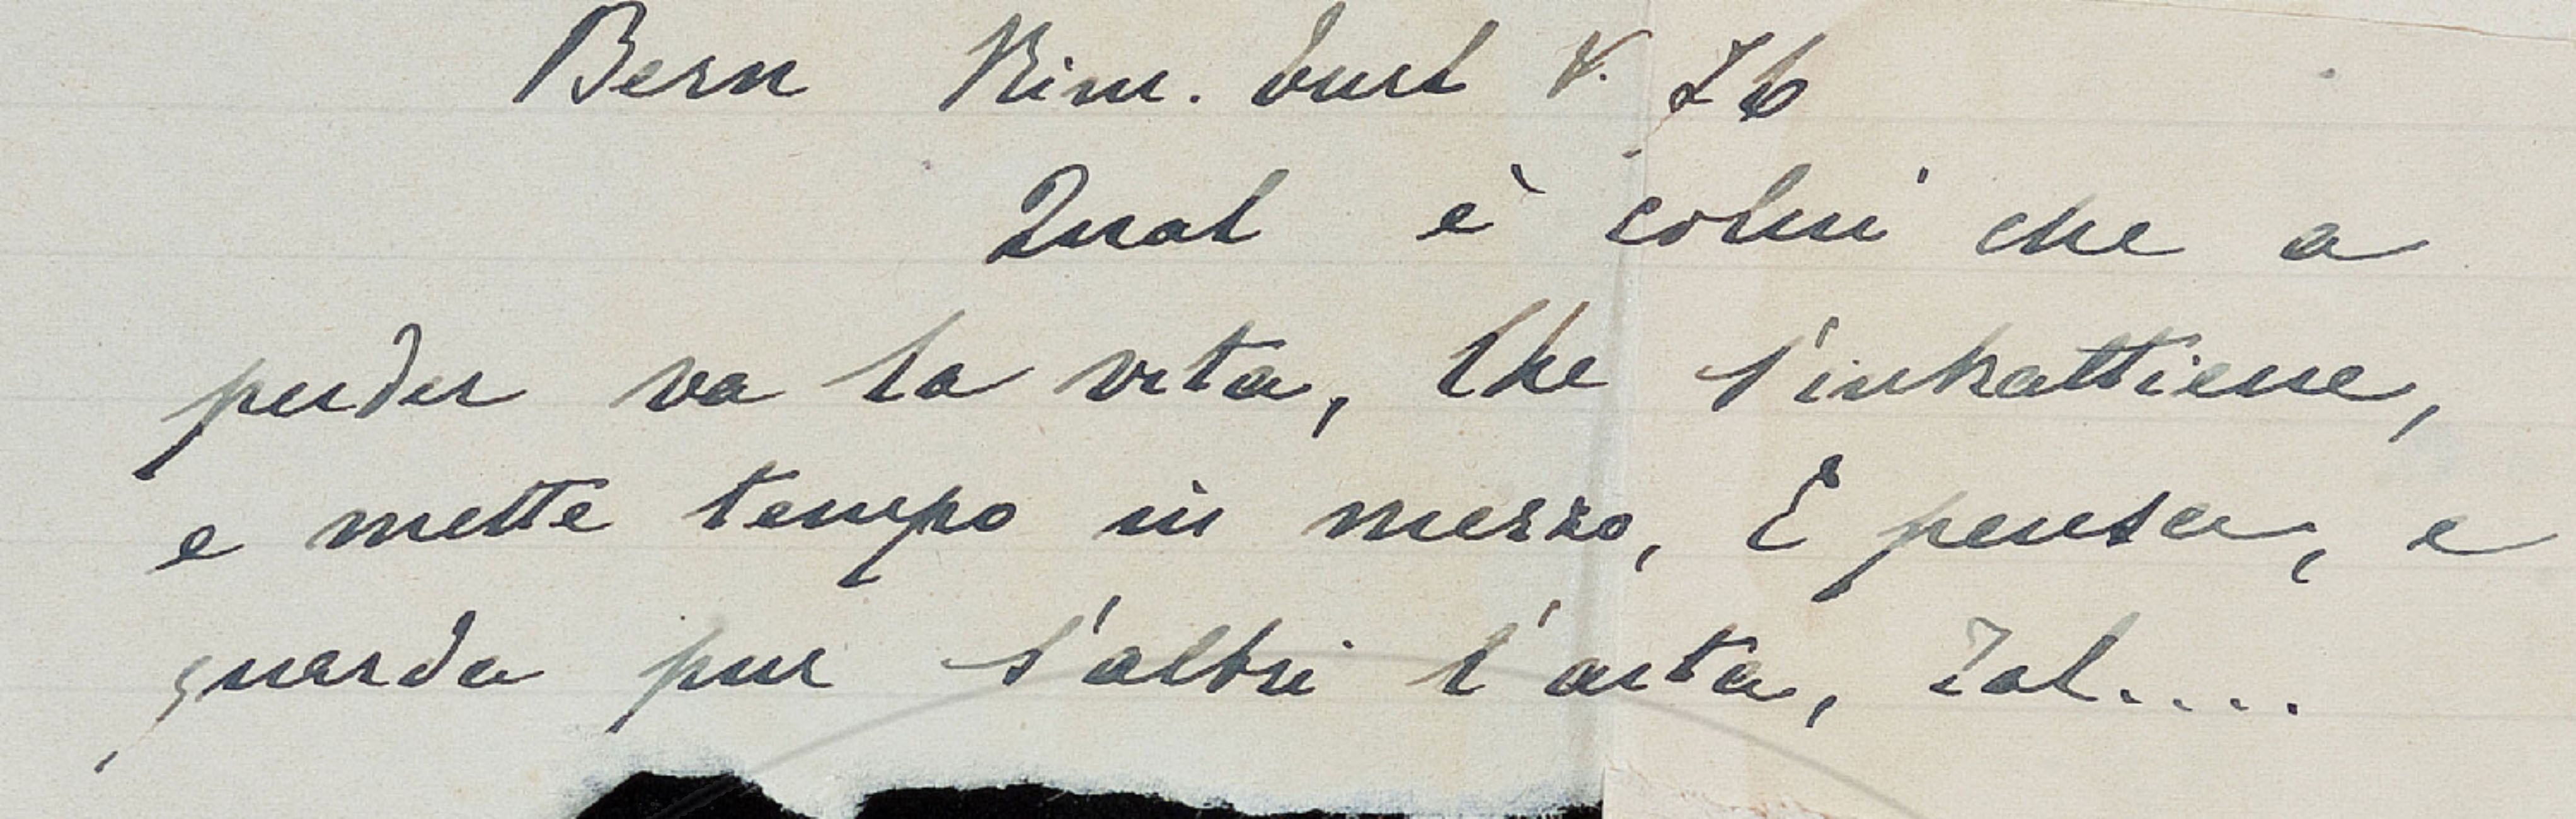 Bern Rim. burl V. 76
Qual è colui che a
perder va la vita, Che s'intrattiene,
e mette tempo in mezzo, E pensa, e
guarda pur s'altri l'aita, Tal....